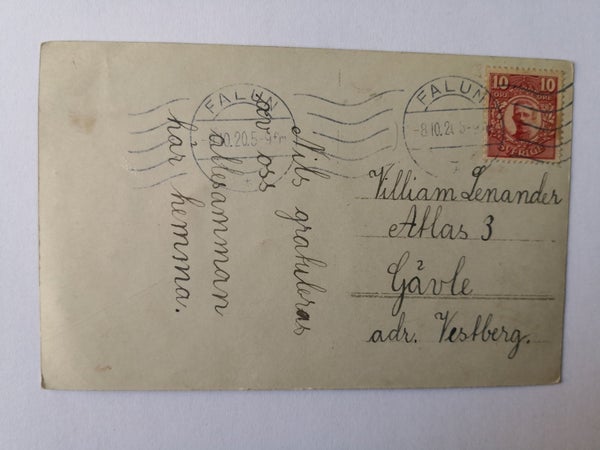 FALUN
-8.10.20.5-9 em
FALUN
-8.10.20.5-
10 10
ÖRE ÖRE
SVERIGE
Nils gratuleras
av oss
allesamman
här hemma.
William Lenander
Atlas 3
Gävle
adr. Vestberg.